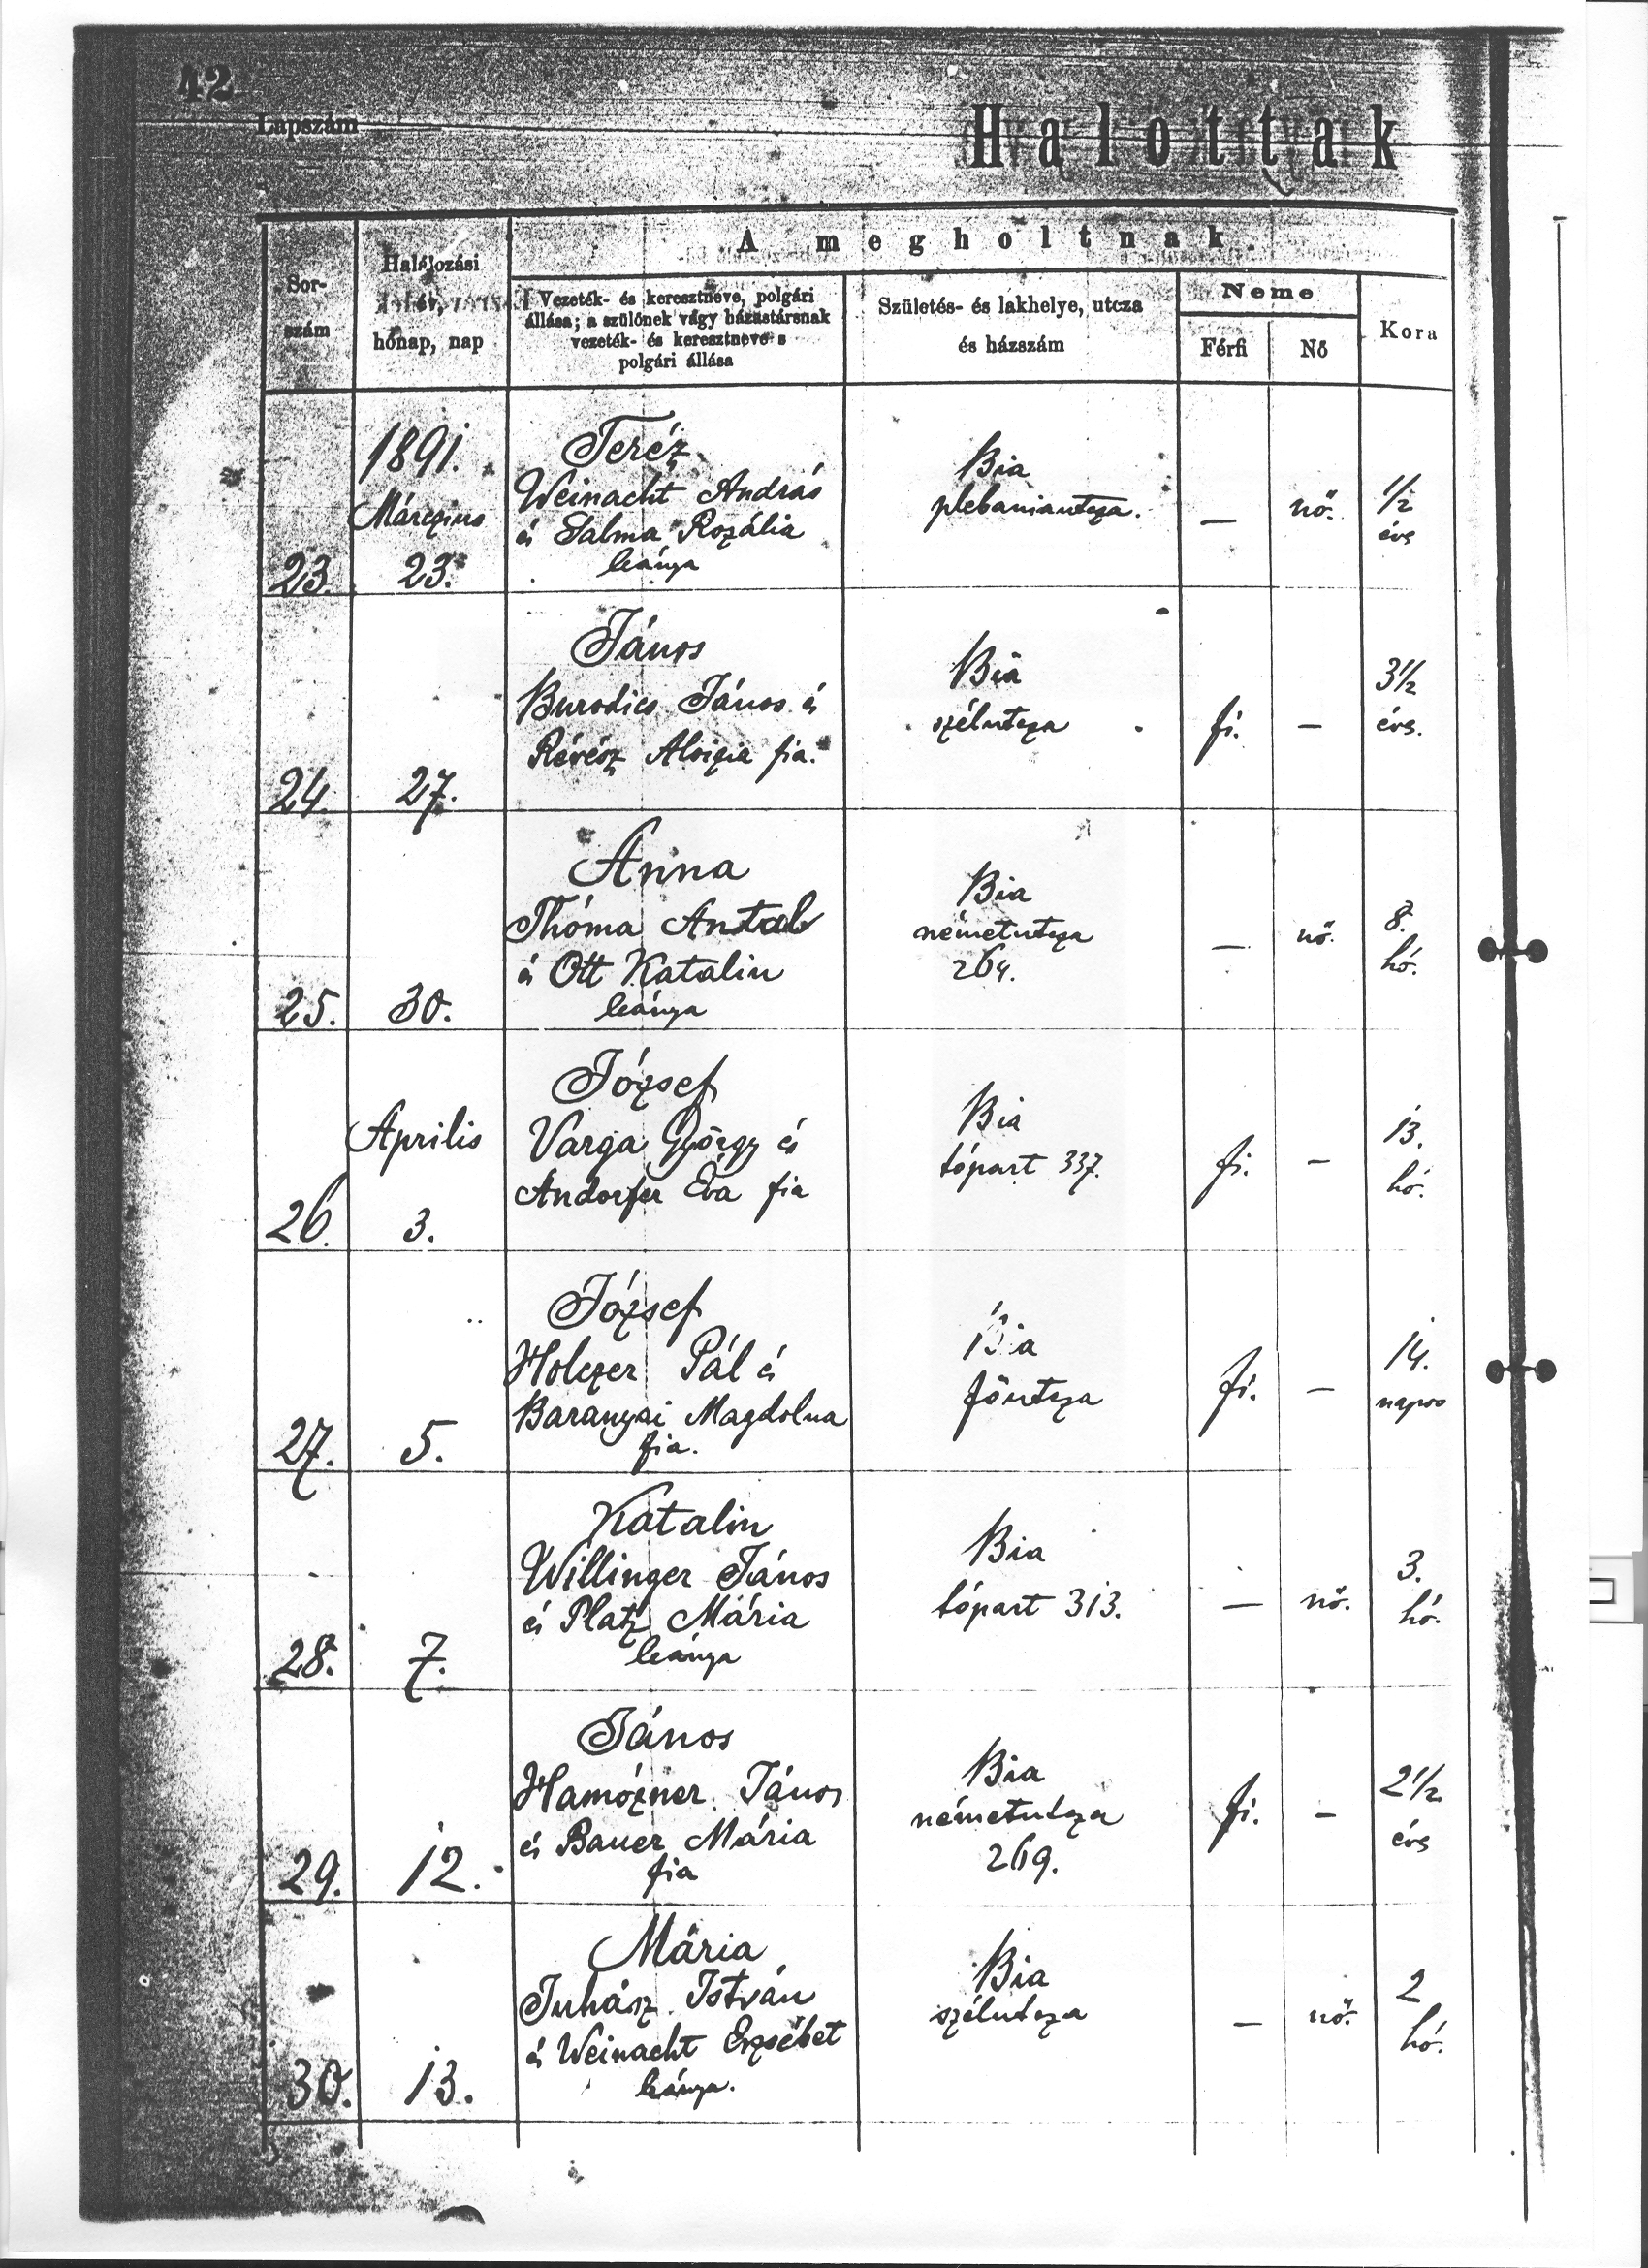 42
Lapszám
Halottak
A megholtnak
Sor-
szám
Halálozási
év,
hónap, nap
Vezeték- és keresztneve, polgári
állása; a szülőnek vagy házastársnak
vezeték- és keresztneve s
polgári állása
Születés- és lakhelye, utcza
és házszám
Neme
Férfi
Nő
Kora
1891.
Márczius
23.
23.
Teréz
Weinacht András
és Salma Rozália
leánya
Bia
plebaniautcza.
—
nő.
1/2
éves
24.
27.
János
Burodics János és
Révész Aloizia fia.
Bia
szélutcza
fi.
—
3 1/2
éves.
25.
30.
Anna
Thóma Antal
és Ott Katalin
leánya
Bia
németutcza
264.
—
nő.
8.
hó.
Aprilis
26.
3.
József
Varga György és
Andorfer Éva fia
Bia
tópart 337.
fi.
—
13.
hó.
27.
5.
József
Holczer Pál és
Baranyai Magdolna
fia.
Bia
főutcza
fi.
—
14.
napos
28.
7.
Katalin
Willinger János
és Platz Mária
leánya
Bia
tópart 313.
—
nő.
3.
hó.
29.
12.
János
Hamózner János
és Bauer Mária
fia
Bia
németutcza
269.
fi.
—
2 1/2
éves
30.
13.
Mária
Juhász István
és Weinacht Erzsébet
leánya.
Bia
szélutcza
—
nő.
2
hó.